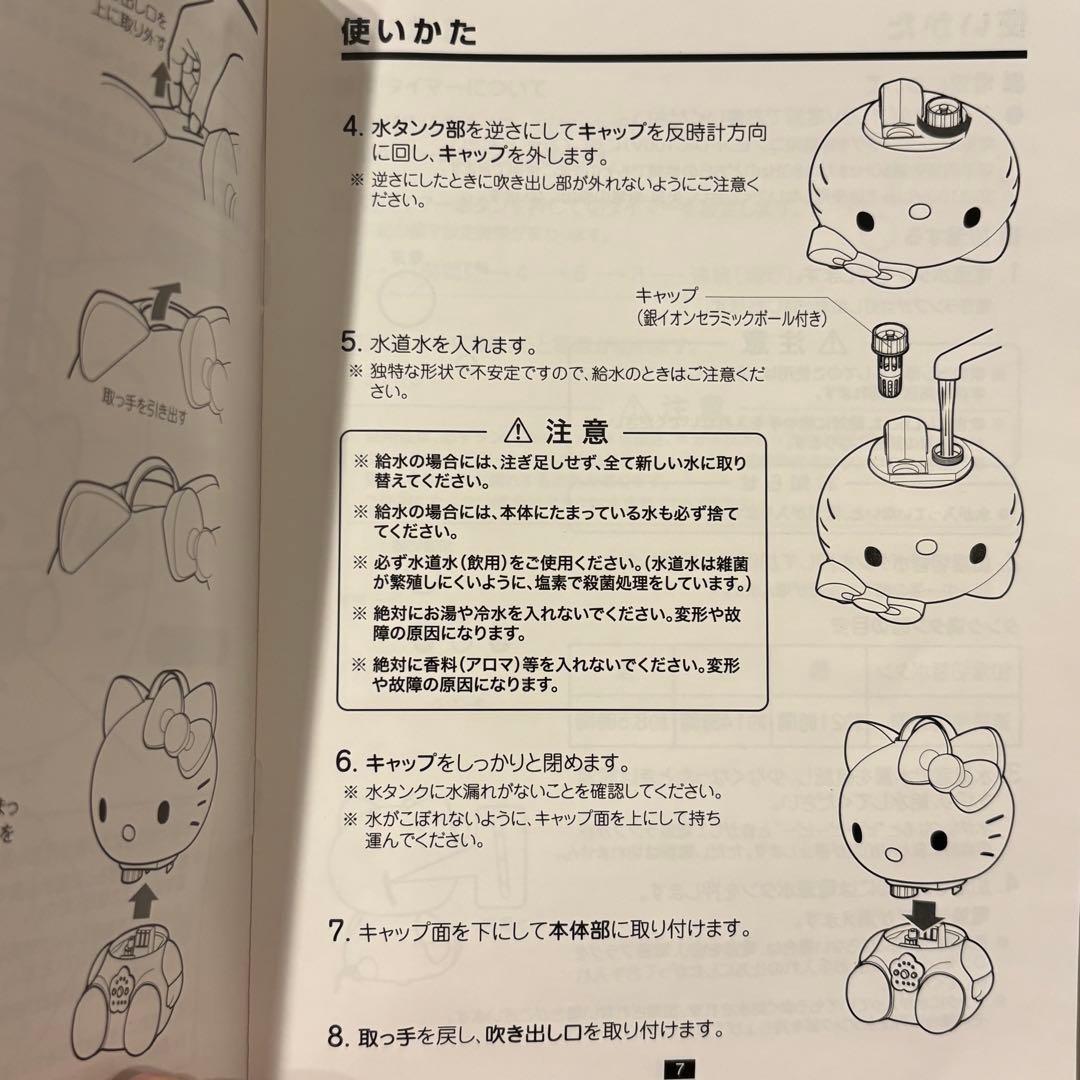 出し口を
上に取り外す
取っ手を引き出す
を
使いかた
4. 水タンク部を逆さにしてキャップを反時計方向
に回し、キャップを外します。
※ 逆さにしたときに吹き出し部が外れないようにご注意く
ださい。
キャップ
(銀イオンセラミックボール付き)
5. 水道水を入れます。
※ 独特な形状で不安定ですので、給水のときはご注意くだ
さい。
注意
※ 給水の場合には、注ぎ足しせず、全て新しい水に取り
替えてください。
※ 給水の場合には、本体にたまっている水も必ず捨て
てください。
※ 必ず水道水(飲用)をご使用ください。(水道水は雑菌
が繁殖しにくいように、塩素で殺菌処理をしています。)
※ 絶対にお湯や冷水を入れないでください。変形や故
障の原因になります。
※ 絶対に香料(アロマ)等を入れないでください。変形
や故障の原因になります。
6. キャップをしっかりと閉めます。
※ 水タンクに水漏れがないことを確認してください。
※ 水がこぼれないように、キャップ面を上にして持ち
運んでください。
7. キャップ面を下にして本体部に取り付けます。
8. 取っ手を戻し、吹き出し口を取り付けます。
7